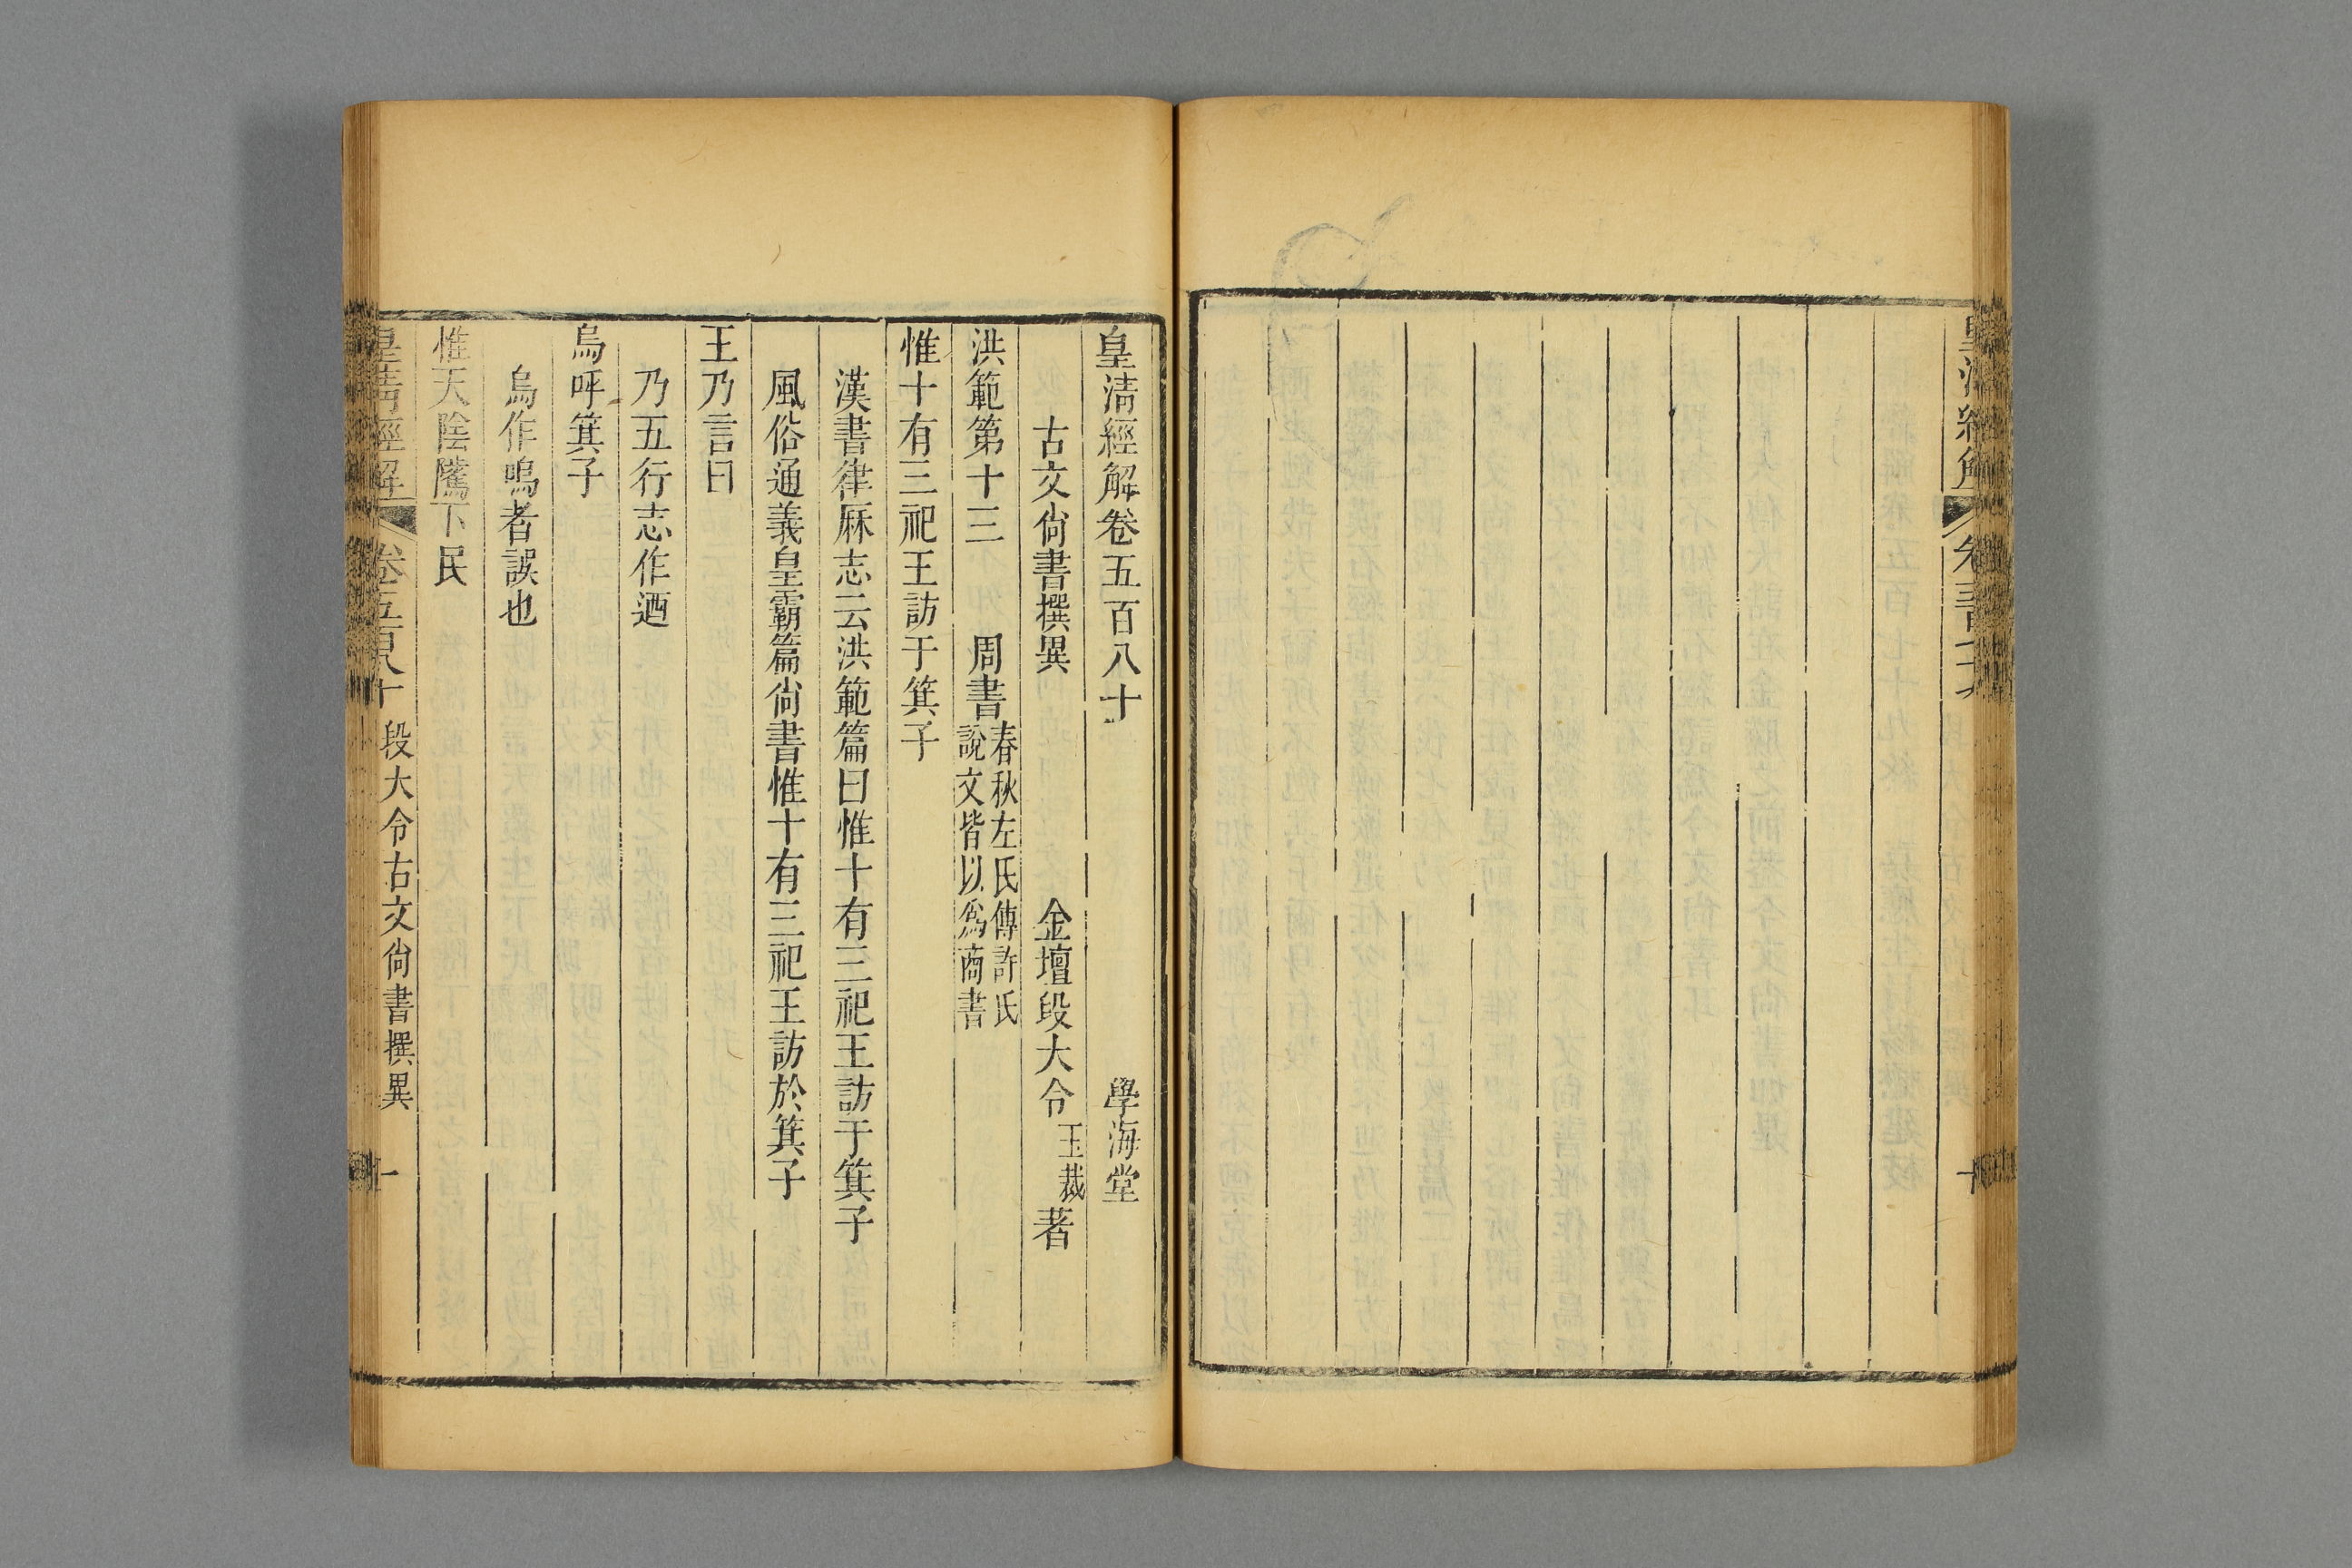 皇清經解卷五百八十 學海堂
古文尚書撰異 金壇段大令玉裁著
洪範第十三 周書 春秋左氏傳許氏說文皆以爲商書
惟十有三祀王訪于箕子
漢書律厤志云洪範篇曰惟十有三祀王訪于箕子
風俗通義皇霸篇尚書惟十有三祀王訪於箕子
王乃言曰
乃五行志作迺
烏呼箕子
烏作嗚者誤也
惟天陰騭下民
皇清經解 卷五百八十 段大令古文尚書撰異 一